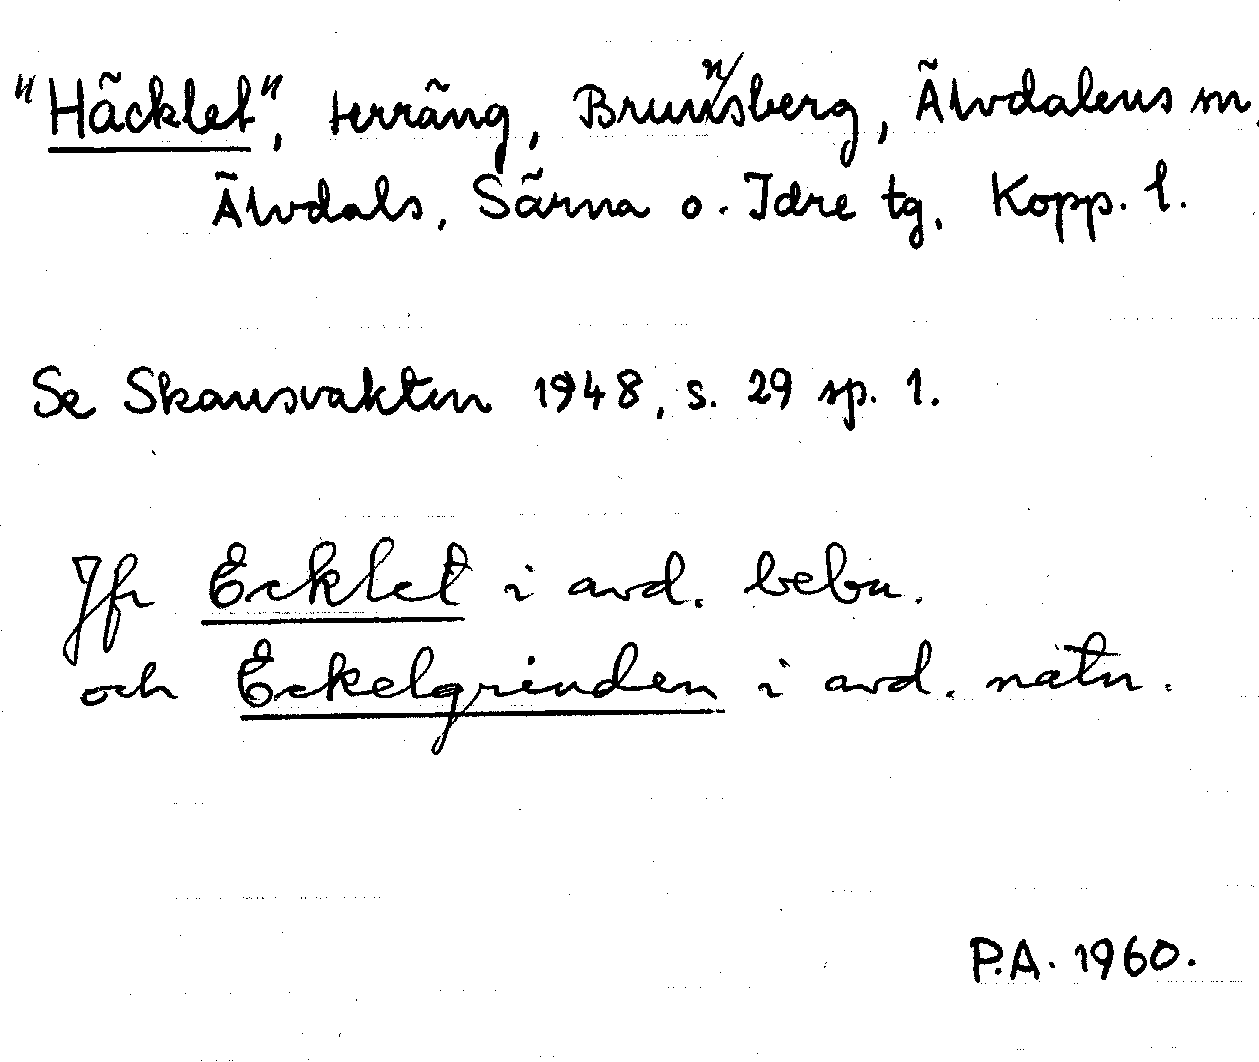 "Häcklet", terräng, Brunnsberg, Älvdalens sn,
Älvdals, Särna o. Idre tg, Kopp. l.
Se Skansvakten 1948, s. 29 sp. 1.
Jfr Ecklet i avd. bebo.
och Eckelgrinden i avd. natur.
P.A. 1960.